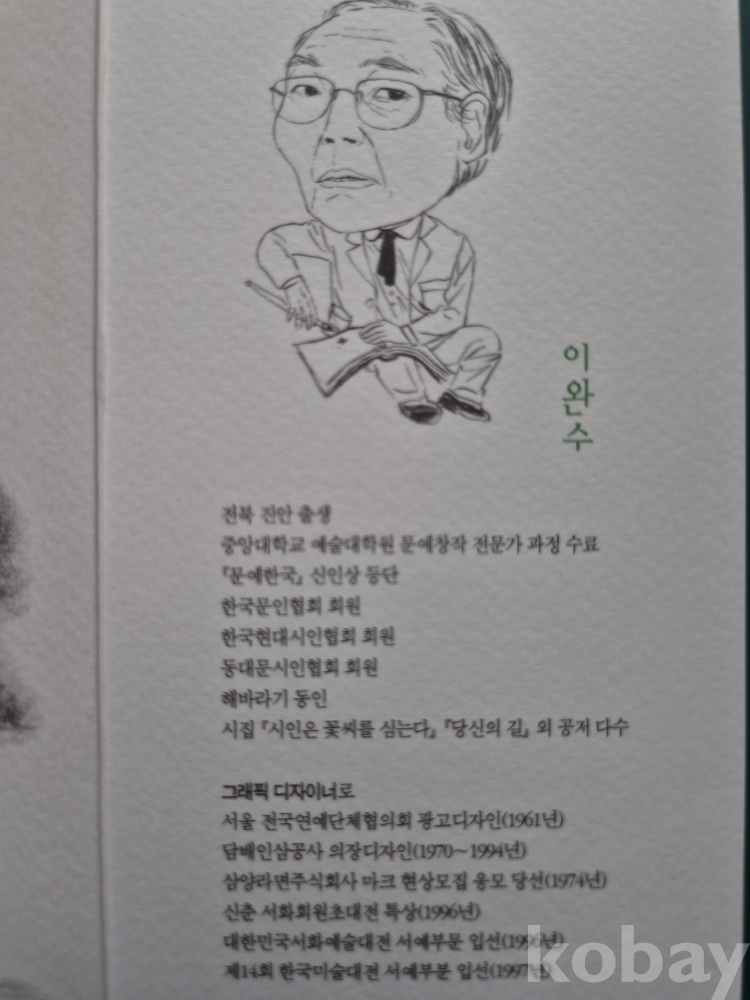 이완수
전북 진안 출생
중앙대학교 예술대학원 문예창작 전문가 과정 수료
『문예한국』 신인상 등단
한국문인협회 회원
한국현대시인협회 회원
동대문시인협회 회원
해바라기 동인
시집 『시인은 꽃씨를 심는다』 『당신의 길』 외 공저 다수
그래픽 디자이너로
서울 전국연예단체협의회 광고디자인(1961년)
담배인삼공사 의장디자인(1970~1994년)
삼양라면주식회사 마크 현상모집 응모 당선(1974년)
신춘 서화회원초대전 특상(1996년)
대한민국서화예술대전 서예부문 입선(1996년)
제14회 한국미술대전 서예부분 입선(1997년)
kobay